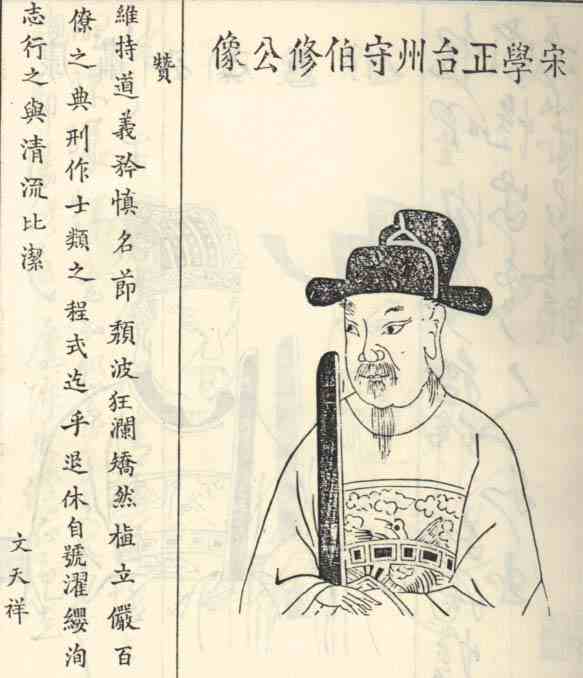 宋學正台州守伯修公像
贊
維持道義矜慎名節頽波狂瀾矯然植立儼百
僚之典刑作士類之程式迄乎退休自號濯纓洵
志行之與清流比潔
文天祥